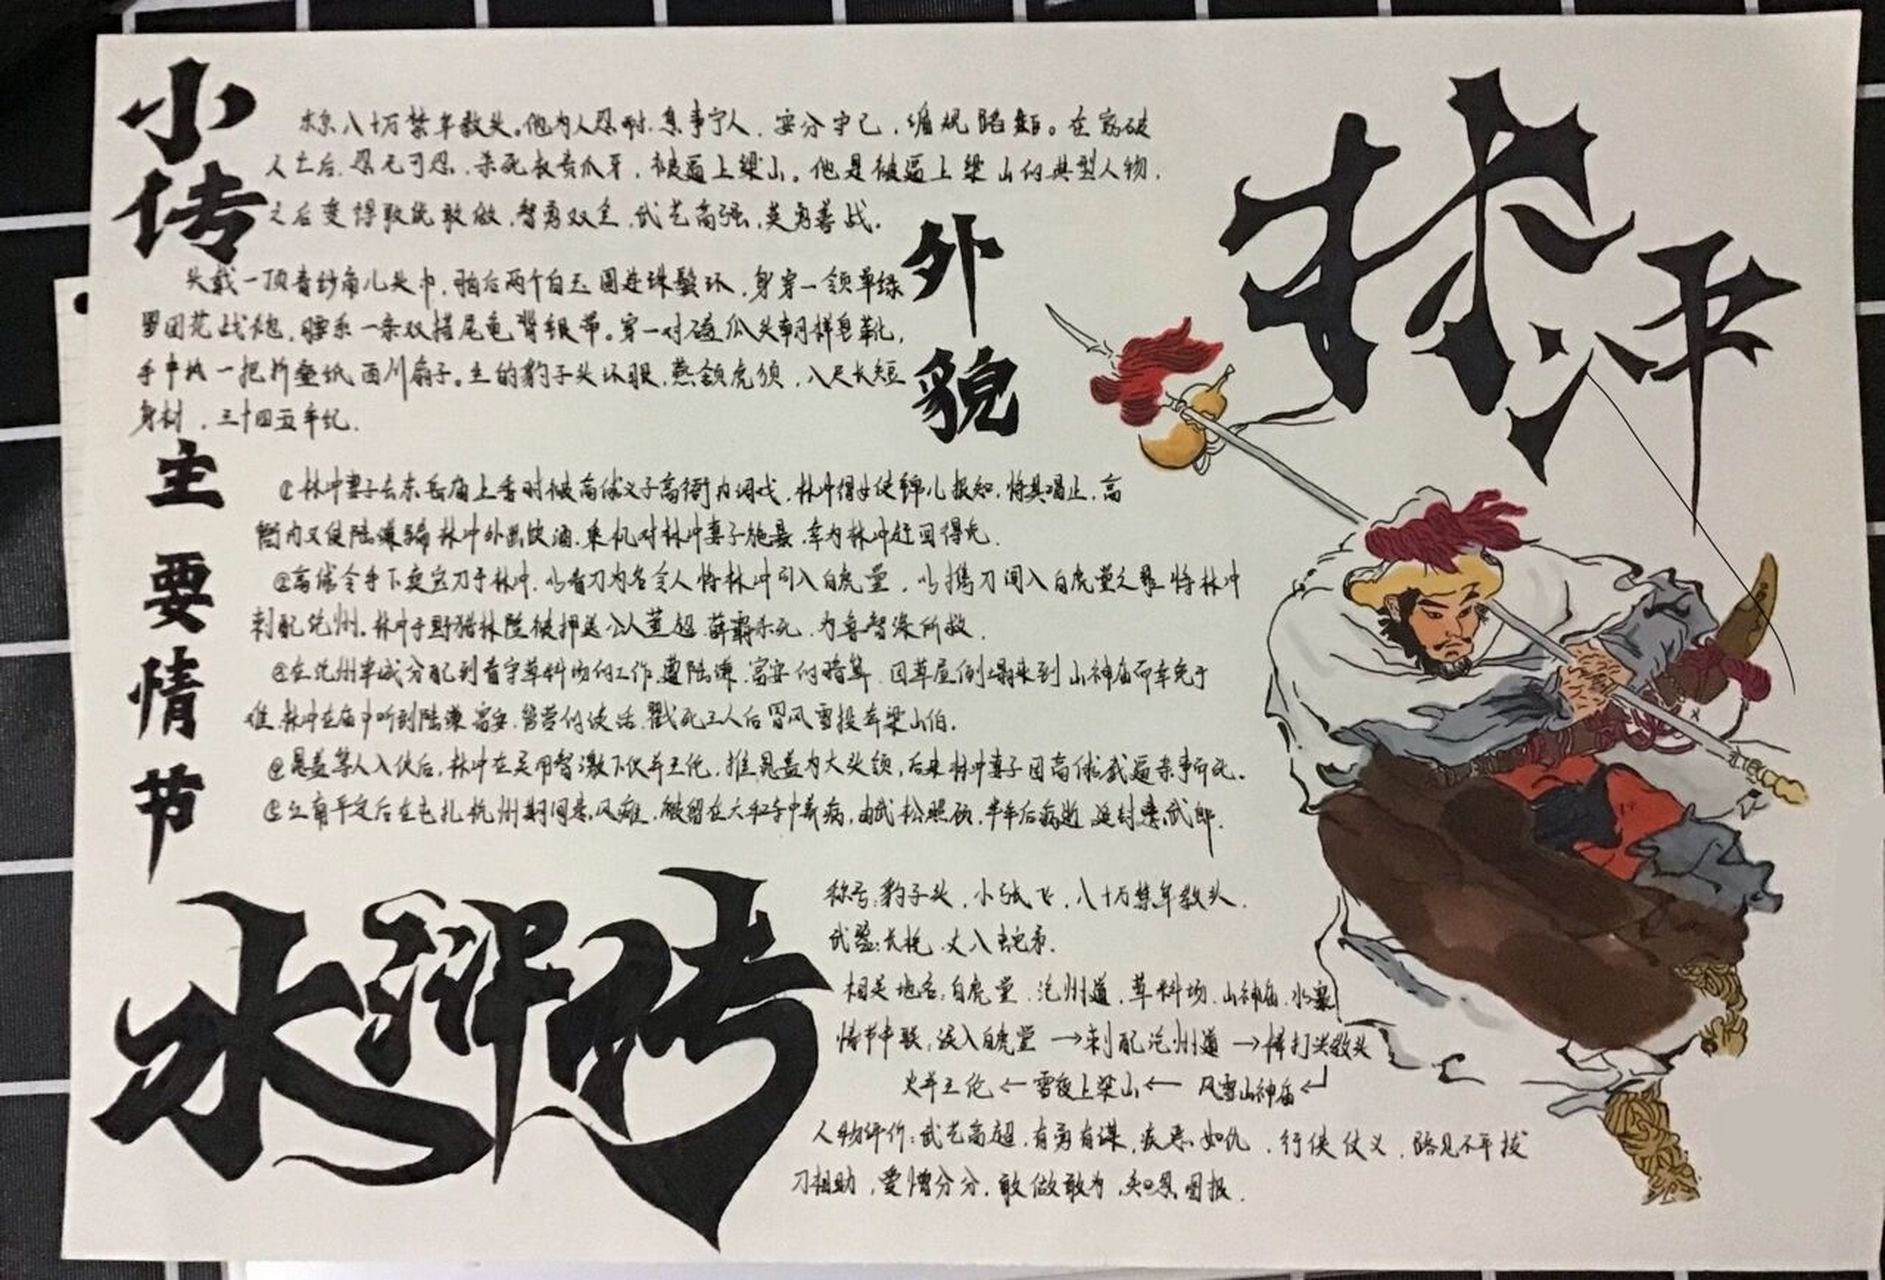 林冲
小传
东京八十万禁军教头。他为人忍耐.息事宁人.安分守己.循规蹈矩。在家破
人亡后.忍无可忍.杀死权贵爪牙.被逼上梁山。他是被逼上梁山的典型人物.
之后变得敢说敢做.智勇双全.武艺高强.英勇善战。
外貌
头戴一顶青纱角儿头巾.脑后两个白玉圈连珠鬓环.身穿一领单绿
罗团花战袍.腰系一条双搭尾龟背银带。穿一对磕瓜头朝样皂靴.
手中执一把折叠纸西川扇子。生的豹子头环眼.燕颔虎须.八尺长短
身材.三十四五年纪.
主要情节
①林冲妻子去东岳庙上香时被高俅义子高衙内调戏.林冲得女使锦儿报知.将其喝止.高
衙内又使陆谦骗林冲外出饮酒.乘机对林冲妻子施暴.幸为林冲赶回得免.
②高俅令手下卖宝刀于林冲.以看刀为名令人将林冲引入白虎堂.以携刀闯入白虎堂之罪将林冲
刺配沧州。林冲于野猪林险被押送公人董超薛霸杀死.为鲁智深所救.
③在沧州牢城分配到看守草料场的工作.遭陆谦.富安的暗算.因草屋倒塌来到山神庙而幸免于
难.林冲在庙中听到陆谦富安.管营的谈话.戳死三人后冒风雪投奔梁山伯.
④晁盖等人入伙后.林冲在吴用智激下火并王伦.推晁盖为大头领.后来林冲妻子因高俅威逼亲事而死.
⑤江南平定后在屯扎杭州期间患风瘫.被留在六和寺中养病.由武松照顾.半年后病逝 追封忠武郎.
水浒传
称号:豹子头.小张飞.八十万禁军教头.
武器:长枪.丈八蛇矛.
相关地名:白虎堂.沧州道.草料场.山神庙.水寨
情节串联:误入白虎堂→刺配沧州道→棒打洪教头
火并王伦←雪夜上梁山←风雪山神庙↵
人物评价:武艺高超.有勇有谋.疾恶如仇.行侠仗义.路见不平拔
刀相助.爱憎分分.敢做敢为.知恩图报.